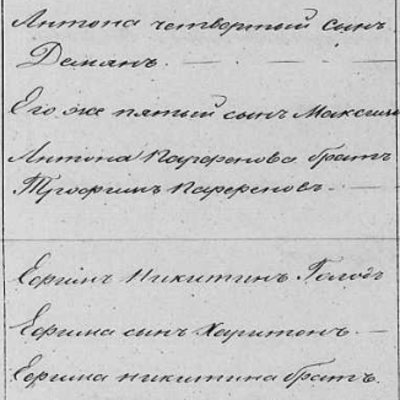 Антона четвертый сынъ
Демянъ.
Его же пятый сынъ Максимъ
Антона Парфенова братъ
Парфеновъ.
Ефимъ Никитинъ Голодъ
Ефима сынъ Харитонъ.
Ефима Никитина братъ.